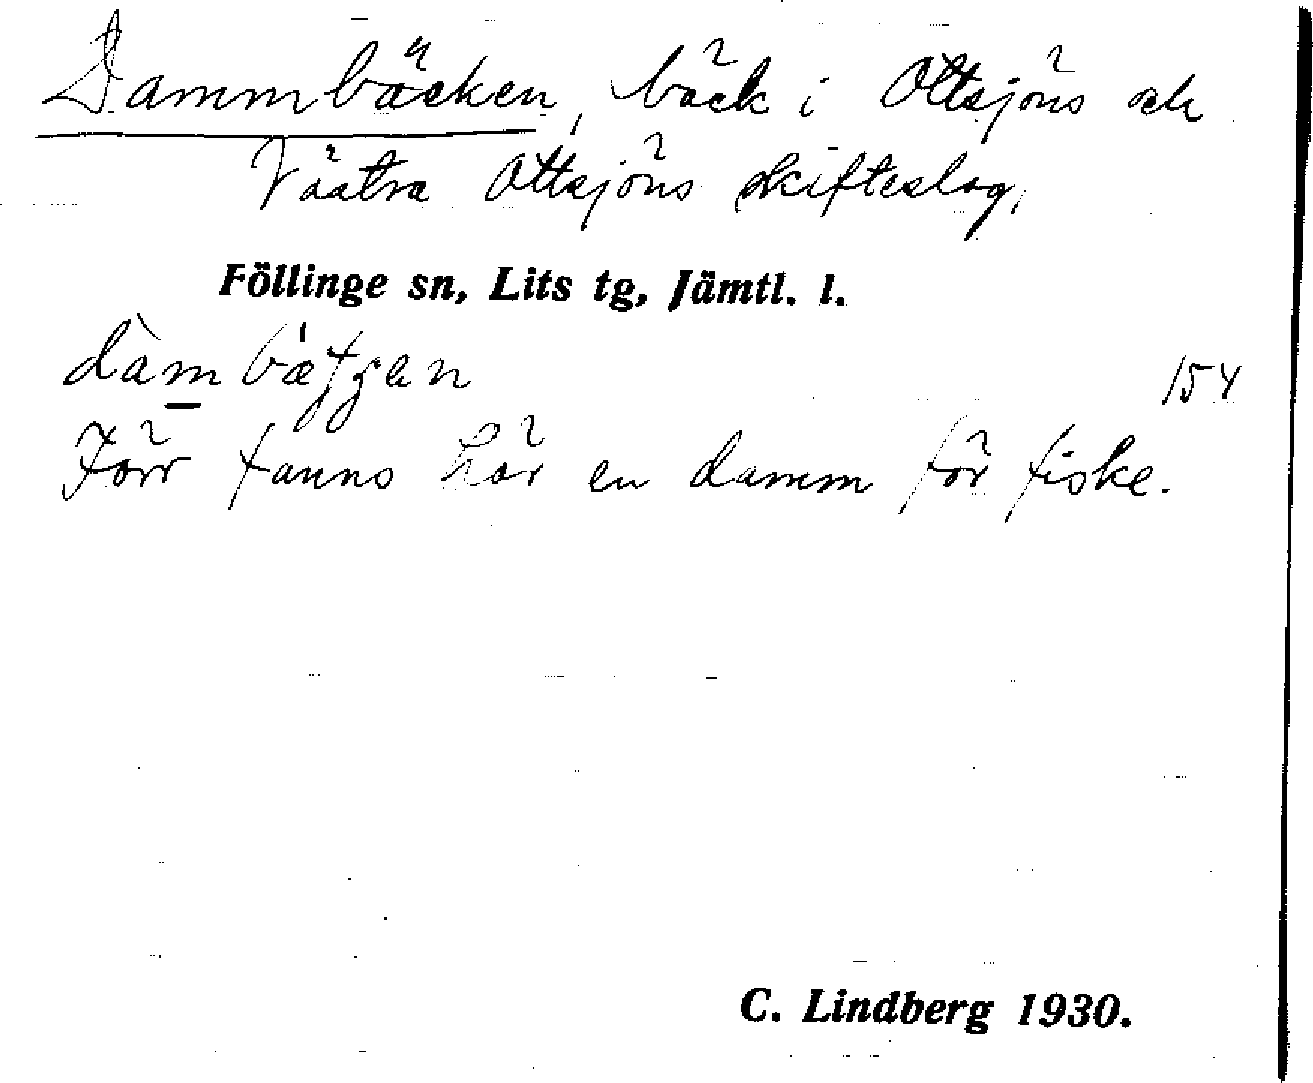 Dammbäcken, bäck i Ottsjöns och
Västra Ottsjöns skifteslag,
Föllinge sn, Lits tg, Jämtl. l.
154
Förr fanns här en damm för fiske.
C. Lindberg 1930.